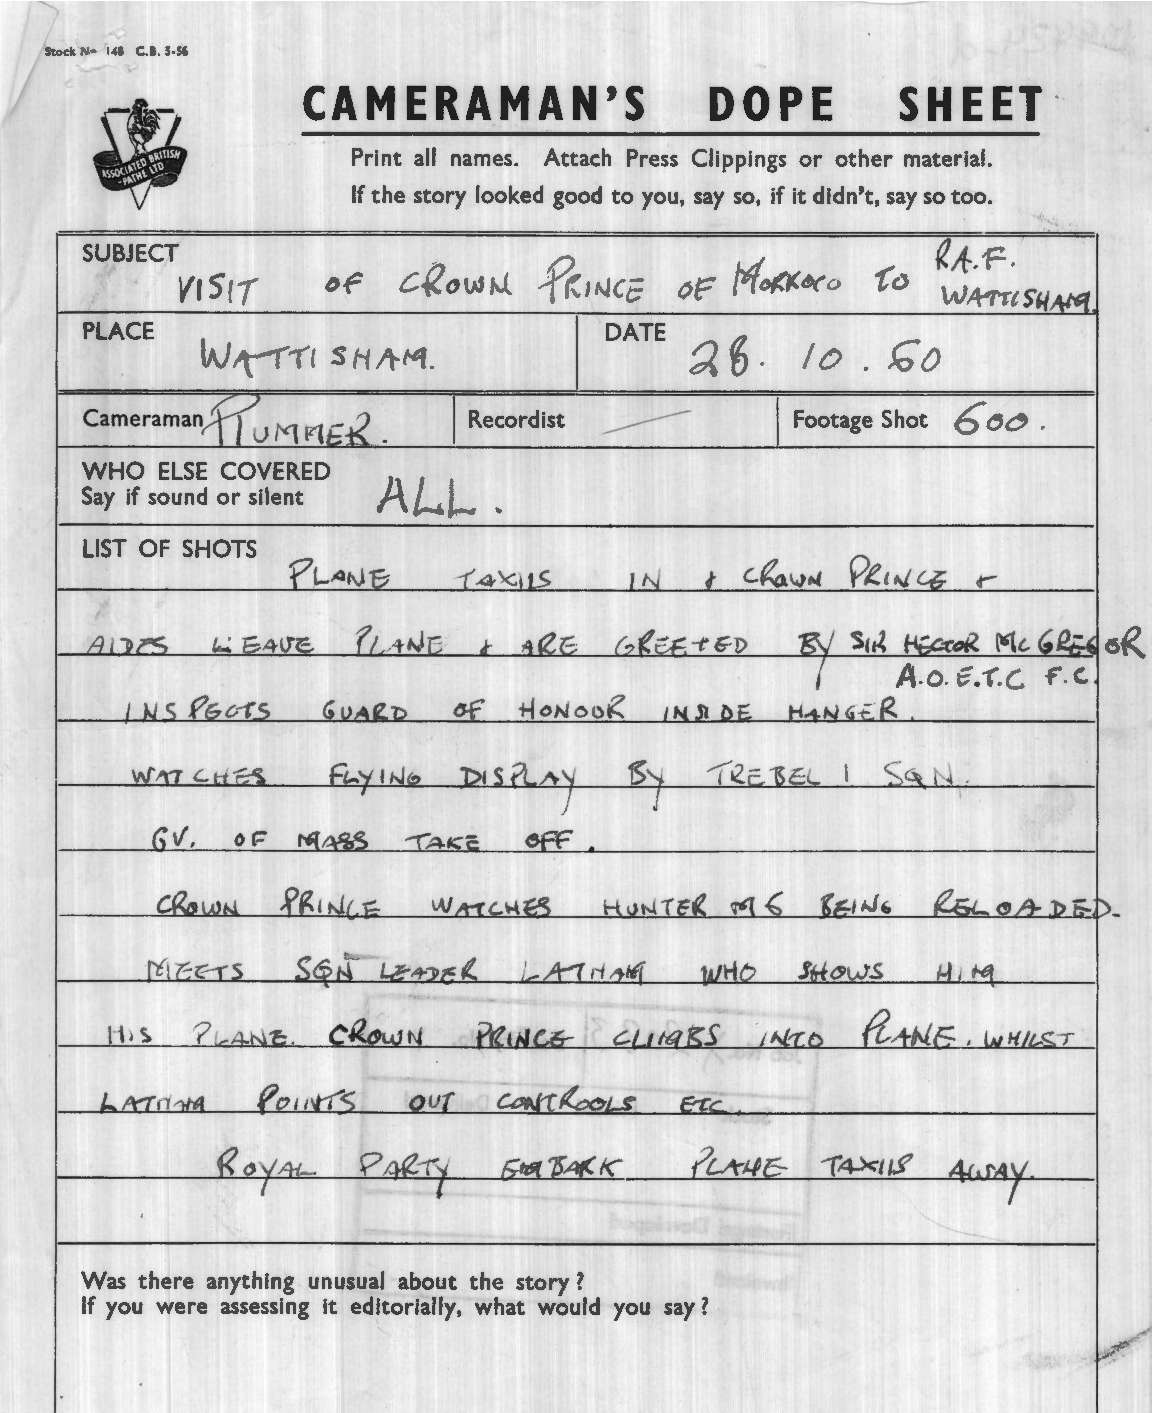 Stock No 148 C.B. 5-56
ASSOCIATED BRITISH
-PATHE LTD
CAMERAMAN'S DOPE SHEET
Print all names. Attach Press Clippings or other material.
If the story looked good to you, say so, if it didn't, say so too.
SUBJECT
VISIT OF CROWN PRINCE OF MORKOCO TO R.A.F. WATTISHAM.
PLACE WATTISHAM.
DATE 28.10.60
Cameraman PLUMMER.
Recordist —
Footage Shot 600.
WHO ELSE COVERED
Say if sound or silent
ALL.
LIST OF SHOTS
PLANE TAXIIS IN & CROWN PRINCE &
AIDES LEAVE PLANE & ARE GREETED BY SIR HECTOR MCGREGOR
A.O.E.T.C F.C.
INSPECTS GUARD OF HONOUR INSIDE HANGER.
WATCHES FLYING DISPLAY BY TREBEL 1 SQN.
GV. OF MASS TAKE OFF.
CROWN PRINCE WATCHES HUNTER M6 BEING RELOADED.
MEETS SQN LEADER LATHAM WHO SHOWS HIM
HIS PLANE. CROWN PRINCE CLIMBS INTO PLANE. WHILST
LATHAM POINTS OUT CONTROOLS ETC.
ROYAL PARTY EMBARK PLANE TAXIIS AWAY.
Was there anything unusual about the story?
If you were assessing it editorially, what would you say?